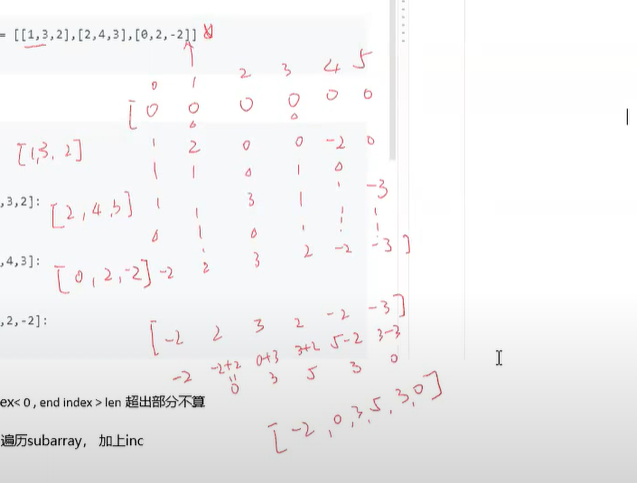 = [[1,3,2],[2,4,3],[0,2,-2]]
0 1 2 3 4 5
[ 0 0 0 0 0 0
[1,3, 2] 1 2 0 0 -2 0
1 1 0 1 0
,3,2]: [2,4,3] 1 1 3 1 1 -3
0 1 0 1 1 1
,4,3]: [0,2,-2] -2 2 3 2 -2 -3 ]
,2,-2]: [ -2 2 3 2 -2 -3 ]
-2 -2+2 0+3 3+2 5-2 3-3
0 3 5 3 0
ex< 0 , end index > len 超出部分不算
遍历subarray， 加上inc
[ -2 , 0, 3, 5, 3, 0 ]